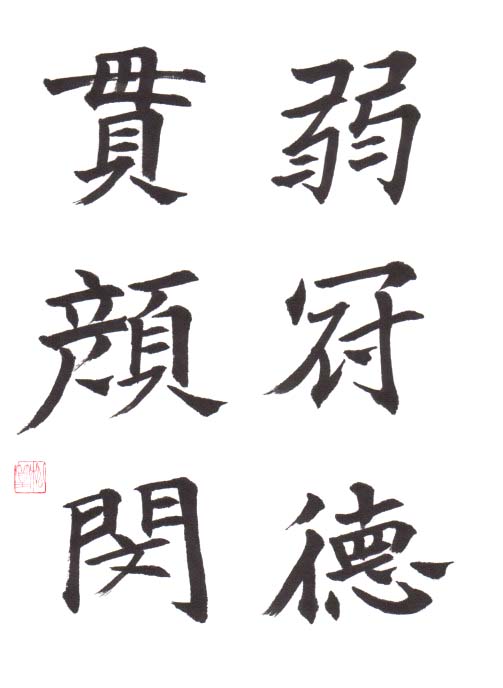 弱冠德
貫顔閔